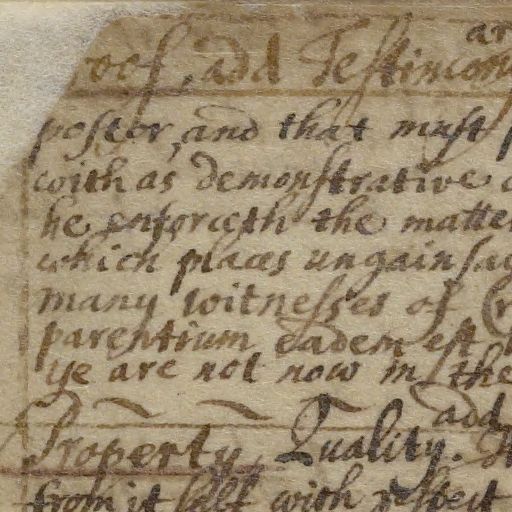 ar
oof, add Testimony
postor, and that must
with as demonstrative
he enforceth the matter
which places ungainsay
many witnesses of
parentium eadem est
ye are not now in the
add
Property, Quality.
from it self with respect